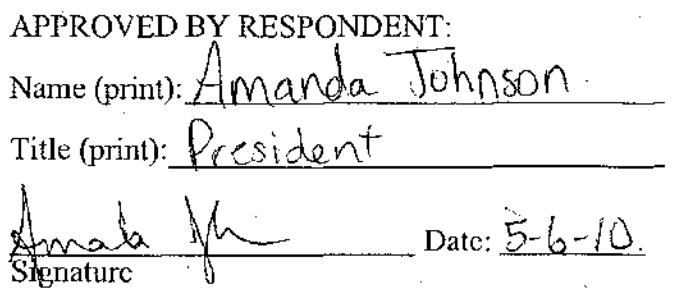 APPROVED BY RESPONDENT:
Name (print): Amanda Johnson
Title (print): President
Date: 5-6-10.
Signature